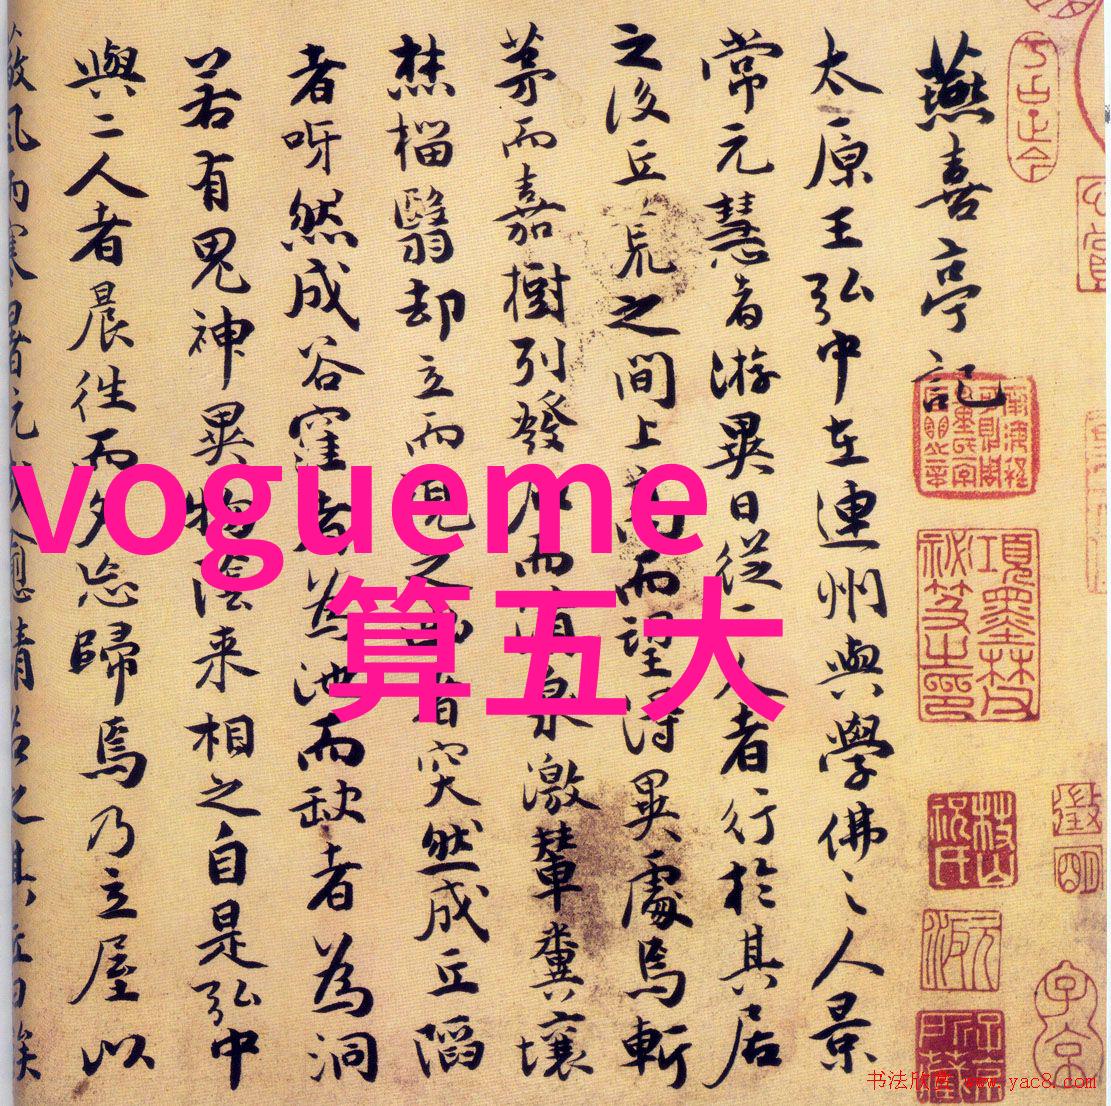 燕喜亭記
太原王弘中在連州與學佛之人景
常元慧者游異日從二人者行於其居
之後丘荒之間上高而望得異處焉斬
茅而嘉樹列發石而清泉激輦糞壤
樵榴翳却立而視之出者突然成丘陷
者呀然成谷窪者為池而缺者為洞
若有鬼神異物陰來相之自是弘中
與二人者晨往而夕忘歸焉乃立屋以
風雨寒暑元
vogueme
算五大
項墨林
祕笈之印
枝山
祝氏
徵明
子京
书法欣赏 www.yac8.com